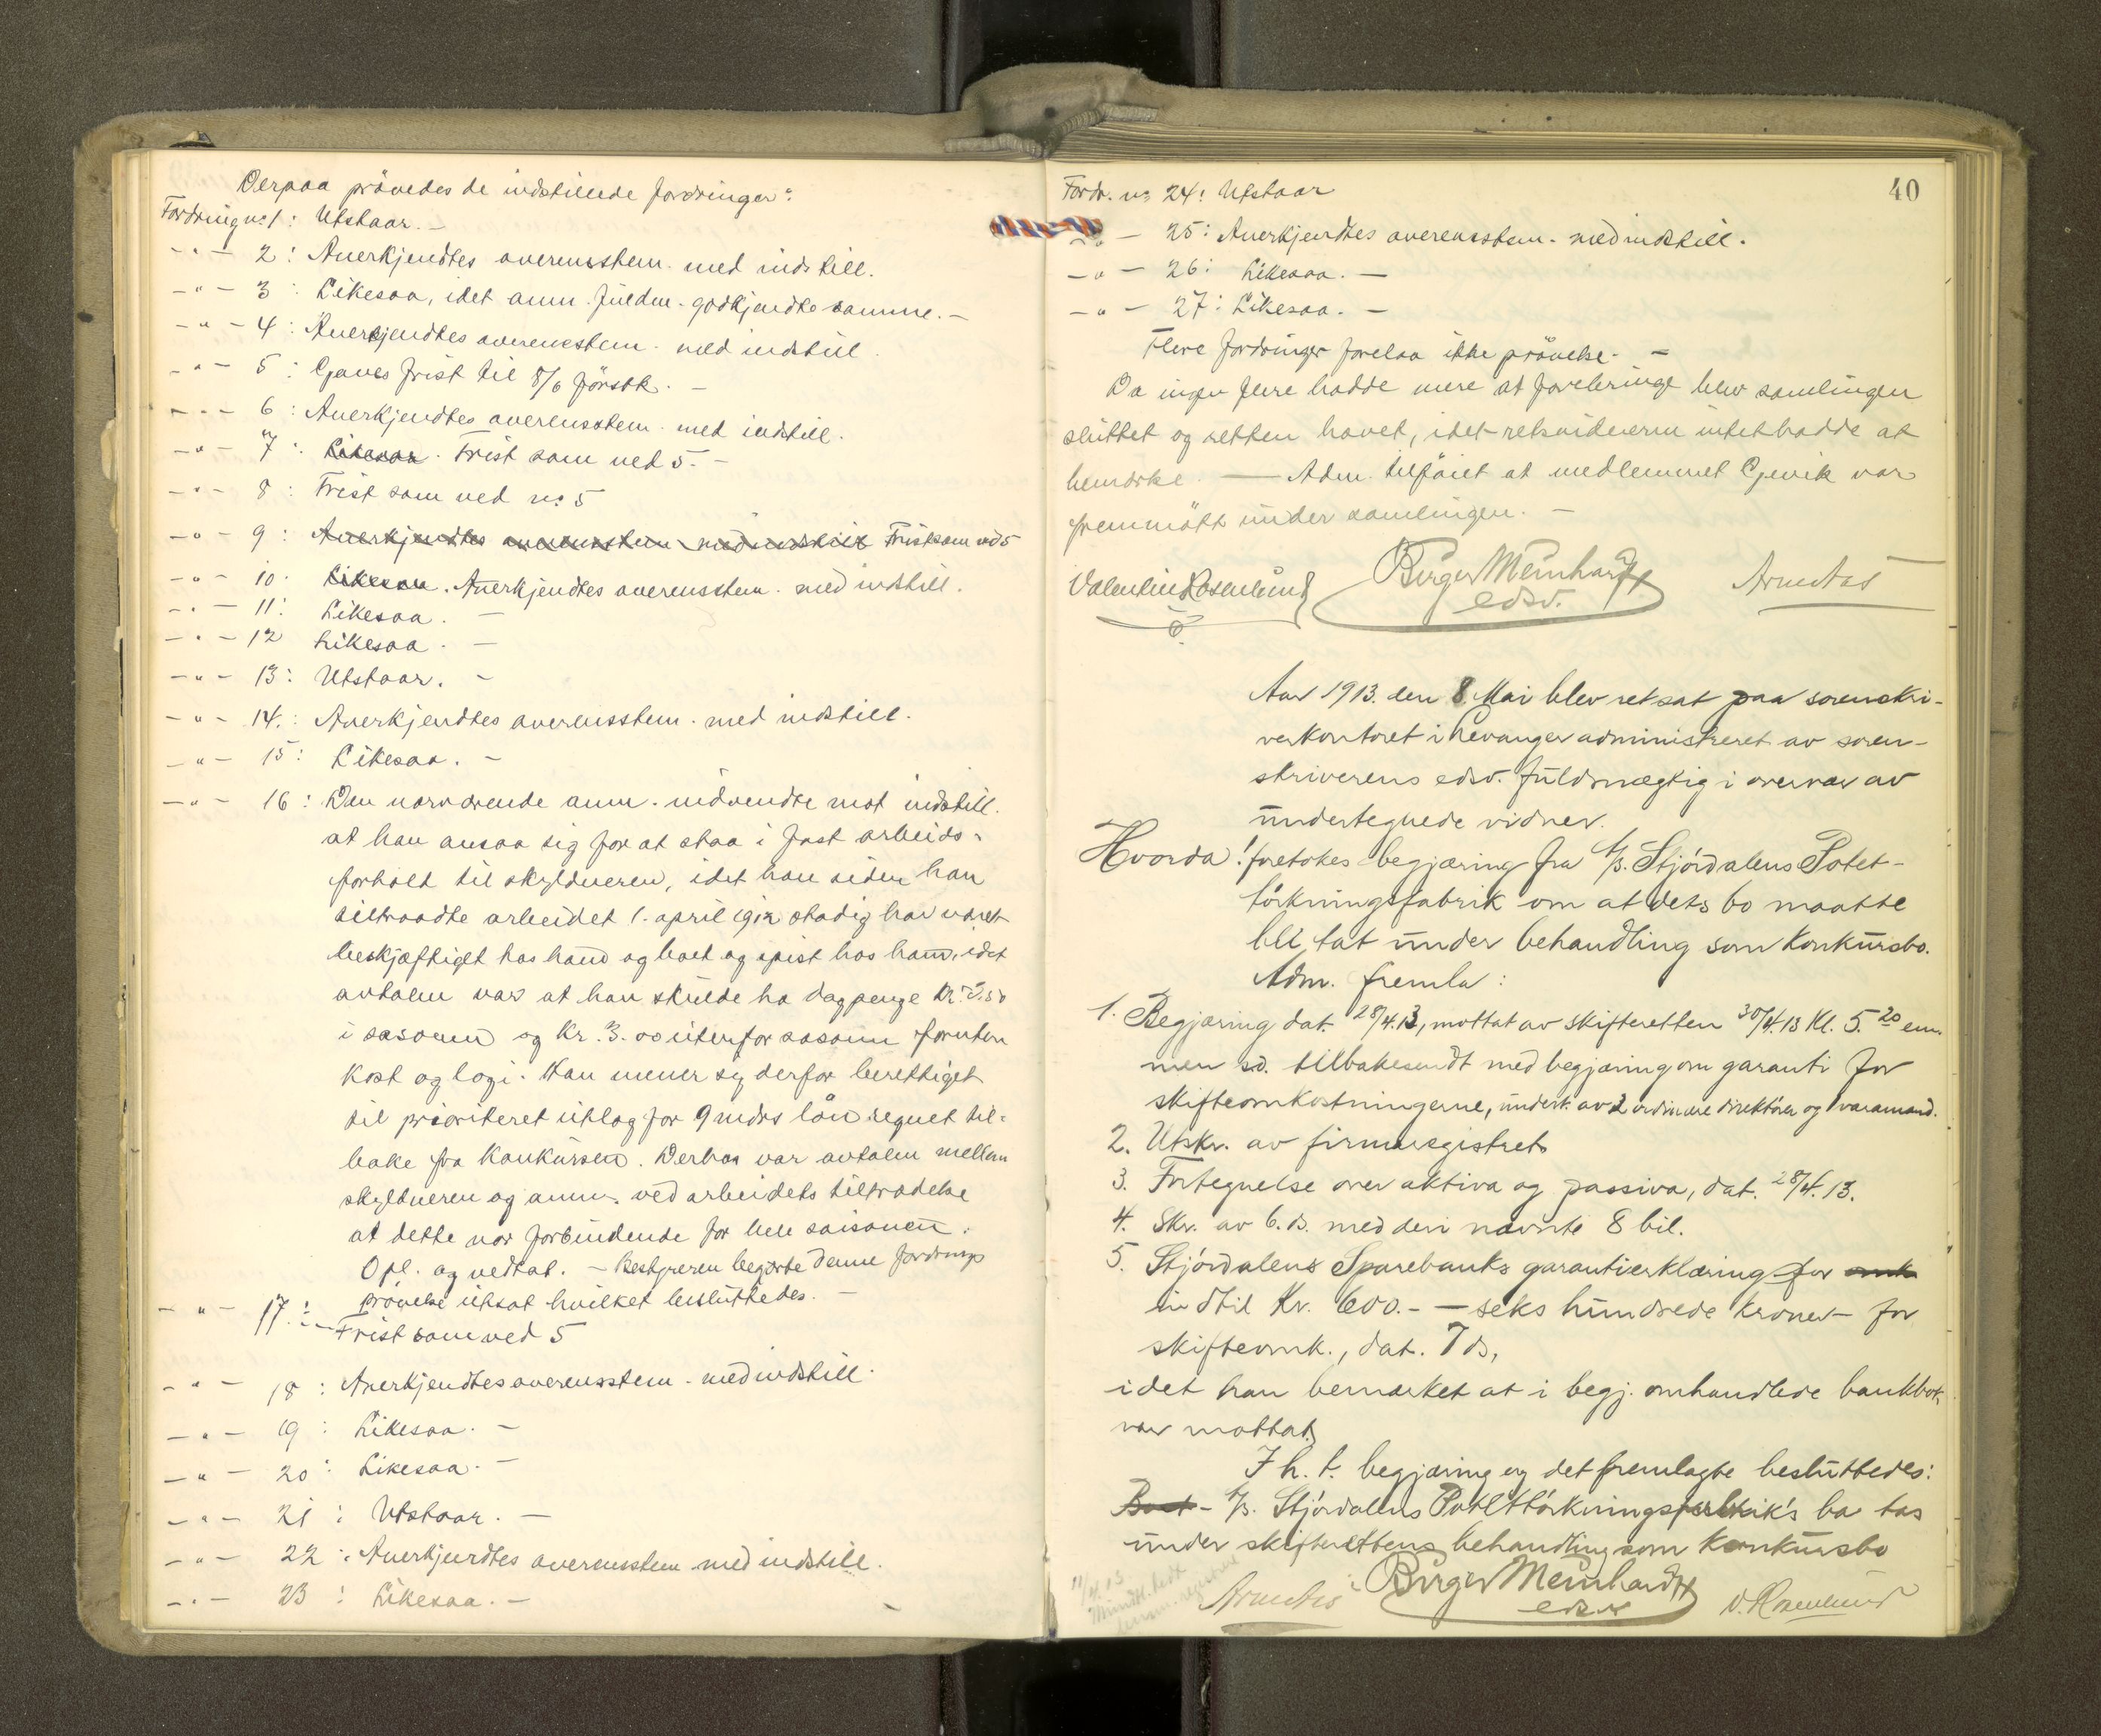 Derpaa prøvedes de indstillede fordringer:
Fordring no 1: Utstaar. –
– " – 2: Anerkjendtes overensstem. med indstill.
– " – 3: Likesaa, idet anm. fuldm. godkjendte samme. –
– " – 4: Anerkjendtes overensstem. med indstill
– " – 5: Gaves frist til 8/6 førstk. –
– " – 6: Anerkjendtes overensstem. med indstill.
– " – 7: Likesaa. Frist som ved 5. –
– " – 8: Frist som ved no 5
– " – 9: Anerkjendtes overensstem. med indstill Frist som ved 5
– " – 10. Likesaa. Anerkjendtes overensstem. med indstill.
– " – 11: Likesaa. –
– " – 12 Likesaa. –
– " – 13: Utstaar. –
– " – 14.: Anerkjendtes overensstem. med indstill.
– " – 15: Likesaa. –
– " – 16: Den nærværende anm. indvendte mot indstill.
at han ansaa sig for at staa i fast arbeids-
forhold til skyldneren, idet han siden han
tiltraadte arbeidet 1. april 1912 stadig har været
beskjæftiget hos ham og boet og spist hos ham, idet
avtalen var at han skulde ha dagpenge Kr. 3.50
i sæsonen og Kr. 3.00 utenfor sæsonen foruten
kost og logi. Han mener sig derfor berettiget
til prioriteret utlæg for 9 mdrs løn regnet til-
bake fra konkursen. Derhos var avtalen mellem
skyldneren og anm. ved arbeidets tiltrædelse
at dette var forbindende for hele saisonen.
Opl. og vedtat. – Bestyreren begjærte denne fordrings
prøvelse utsat hvilket besluttedes. –
– " – 17.: Frist som ved 5
– " – 18: Anerkjendtes overensstem. med indstill.
– " – 19: Likesaa. –
– " – 20: Likesaa. –
– " – 21: Utstaar. –
– " – 22: Anerkjendtes overensstem. med indstill.
– " – 23: Likesaa. –
40
Fordr. no 24: Utstaar
– " – 25: Anerkjendtes overensstem. med indstill.
– " – 26: Likesaa. –
– " – 27: Likesaa. –
Flere fordringer forelaa ikke prøvelse. –
Da ingen flere hadde mere at forebringe blev samlingen
sluttet og retten hævet, idet retsvidnerne intet hadde at
bemerke. — Adm. tilføiet at medlemmet Gjevik var
fremmøtt under samlingen. –
Valentin Rosenlund Birger Meinhardt
edsv.
Aar 1913. den 8. Mai blev ret sat paa sorenskri-
verkontoret i Levanger administreret av soren-
skriverens edsv. fuldmægtig i overvær av
undertegnede vidner.
Hvorda: foretokes begjæring fra A/S. Stjørdalens Potet-
tørkningsfabrik om at dets bo maatte
bli tat under behandling som konkursbo.
Adm. fremla:
1. Begjæring dat. 28/4.13, mottat av skifteretten 30/4.13 Kl. 5.20 em.
men sd. tilbakesendt med begjæring om garanti for
skifteomkostningerne, underk. av 2 ordinære direktører og 1 varamand.
2. Utskr. av firmaregistret
3. Fortegnelse over aktiva og passiva, dat. 28/4. 13.
4. Skr. av 6. ds. med deri nævnte 8 bil.
5. Stjørdalens Sparebanks garantierklæring for omk
indtil Kr. 600.- – seks hundrede kroner – for
skifteomk., dat. 7 ds,
idet han bemærket at i begj. omhandlede bankbok,
var mottat.
I h. t. begjæring og det fremlagte besluttedes:
Boet – A/S. Stjørdalens Potettørkningsfabrik's bo tas
under skifterettens behandling som konkursbo
Birger Meinhardt
edsv
V. Rosenlund